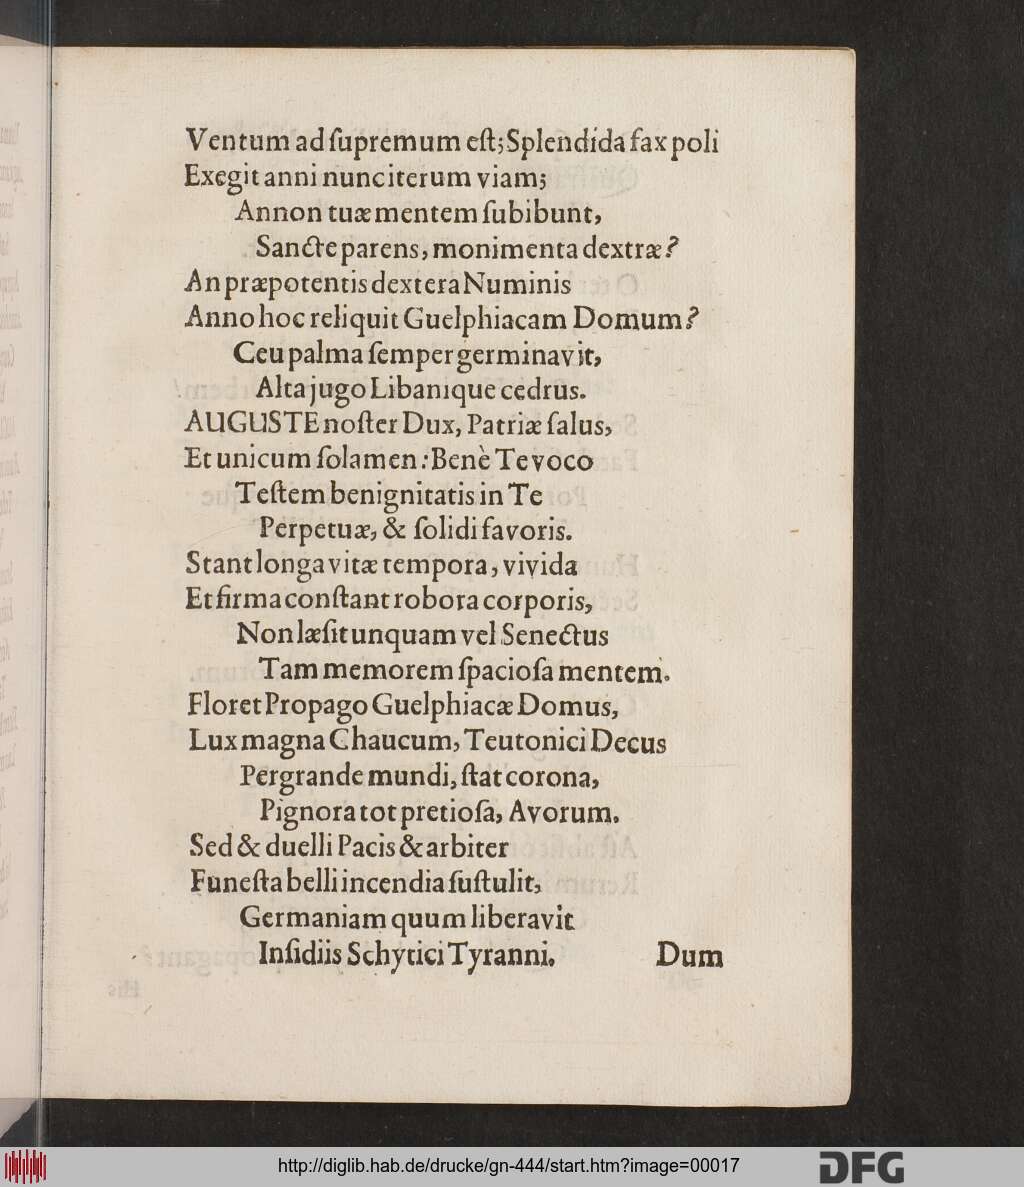 Ventum ad ſupremum eſt; Splendida fax poli
Exegit anni nunc iterum viam;
Annon tuæ mentem ſubibunt,
Sancte parens, monimenta dextræ?
An præpotentis dextera Numinis
Anno hoc reliquit Guelphiacam Domum?
Ceu palma ſemper germinavit,
Alta jugo Libanique cedrus.
AUGUSTE noſter Dux, Patriæ ſalus,
Et unicum ſolamen: Benè Te voco
Teſtem benignitatis in Te
Perpetuæ, & ſolidi favoris.
Stant longa vitæ tempora, vivida
Et firma conſtant robora corporis,
Non læſit unquam vel Senectus
Tam memorem ſpacioſa mentem.
Floret Propago Guelphiacæ Domus,
Lux magna Chaucum, Teutonici Decus
Pergrande mundi, ſtat corona,
Pignora tot pretioſa, Avorum.
Sed & duelli Pacis & arbiter
Funeſta belli incendia ſuſtulit,
Germaniam quum liberavit
Inſidiis Schytici Tyranni.
Dum
http://diglib.hab.de/drucke/gn-444/start.htm?image=00017
DFG